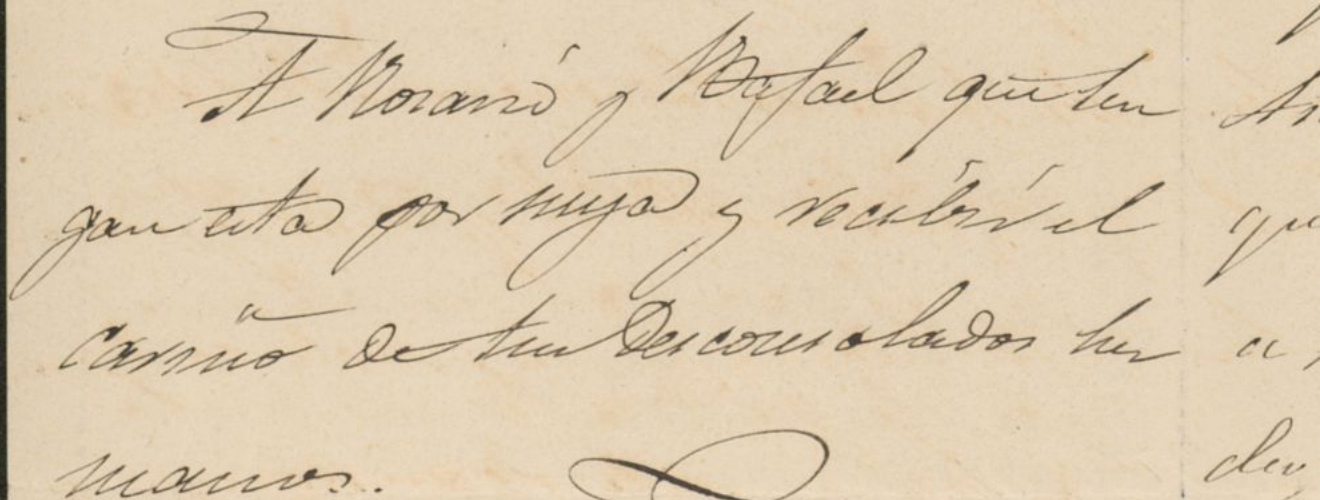 A Rosarió y Rafael que ten
gan esta por suya y recibír el
cariño de tus Desconsolados her
manos.